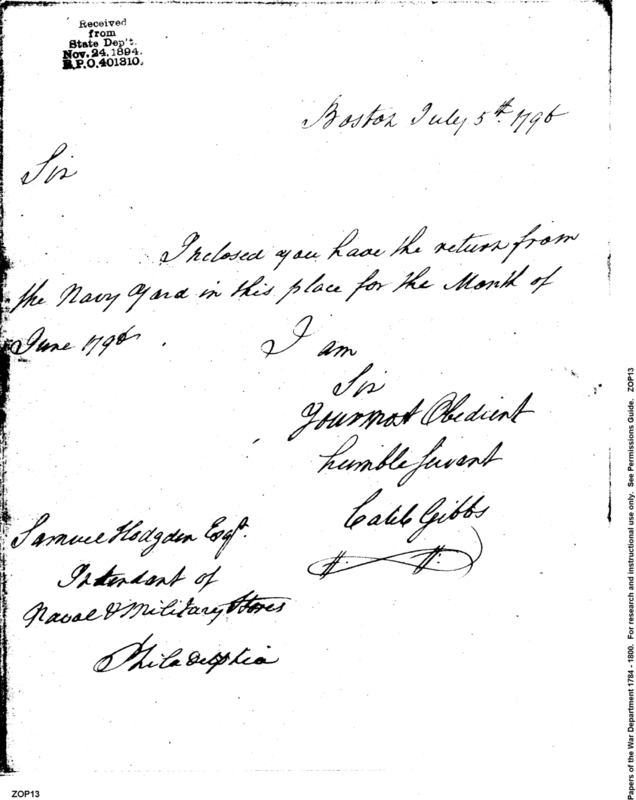 Received
from
State Dep't.
Nov. 24, 1894.
R.P.O. 401310.
Boston July 5th. 1796
Sir
Inclosed you have the return from
the Navy Yard in this place for the Month of
June 1796.
I am
Sir
Your most Obedient
humble Servant
Caleb Gibbs
Samuel Hodgden Esqr.
Intendant of
Naval & Military Stores
Philadelphia
ZOP13
Papers of the War Department 1784 - 1800. For research and instructional use only. See Permissions Guide. ZOP13